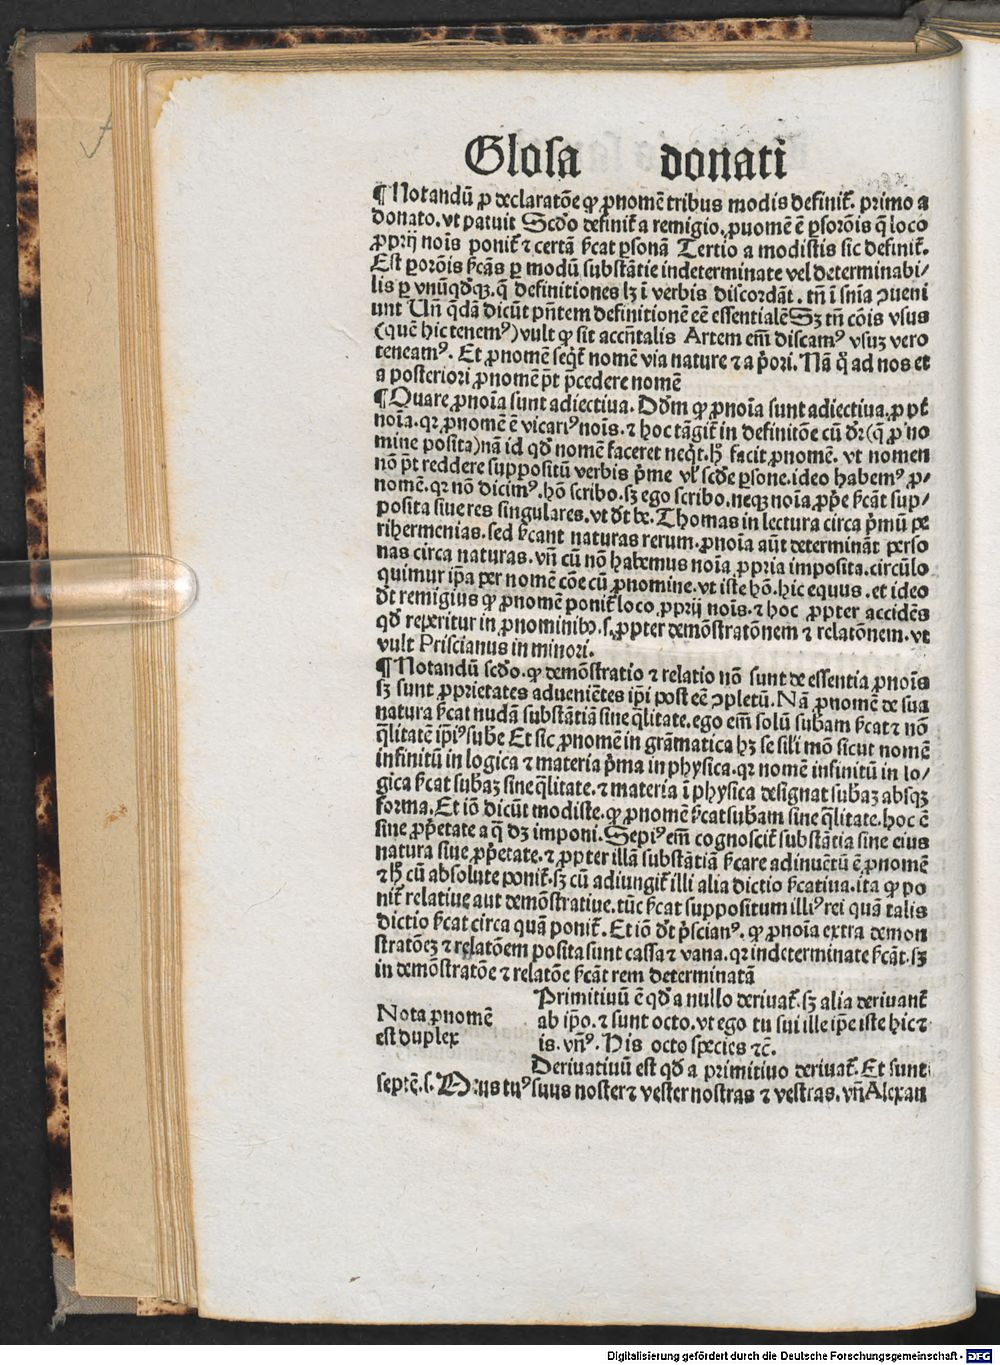 Glosa donati
¶ Notandū ꝓ declaratōe ꝙ ꝓnomē tribus modis definit᷑. primo a
donato. vt patuit Scd̓o definit᷑ a remigio. ꝓnomē ē ꝑs orōis q̄ loco
ꝓprij nois ponit᷑ ⁊ certā ſicat ꝑsonā Tertio a modistis sic definit᷑.
Est ꝑs orōis ſicās ꝑ modū substātie indeterminate vel determinabi/
lis ꝑ vnūqd̓qꝫ. q̄ definitiones lꝫ ī verbis discordāt. tn̄ ī sn̄ia ꝯueni
unt Un̄ q̄dā dicūt pn̄tem definitionē eē essentialē Sꝫ tn̄ cōis vsus
(quē hic tenemꝰ) vult ꝙ sit accn̄talis Artem em̄ discamꝰ vsuꝫ vero
teneamꝰ. Et ꝓnomē seqt᷑ nomē via nature ⁊ a p̓ori. Nā q̊ ad nos et
a posteriori ꝓnomē pōt p̄cedere nomē
¶ Quare ꝓnoīa sunt adiectiua. Dd̓m ꝙ ꝓnoīa sunt adiectiua, ꝓpt̓
noīa. qꝛ ꝓnomē ē vicariꝰ nois. ⁊ hoc tāgit᷑ in definitōe cū dꝛ (q̄ ꝓ no
mine posita) nā id qd̓ nomē faceret neqt᷑. h̓ facit ꝓnomē. vt nomen
nō pōt reddere suppositū verbis p̓me vl̓ scd̓e ꝑsone. ideo habemꝰ ꝓ/
nomē. qꝛ nō dicimꝰ. hō scribo. sꝫ ego scribo. neqꝫ noīa ꝓp̓e ſicāt sup/
posita siue res singulares. vt dt̓ be. Thomas in lectura circa p̓mū pe
rihermenias. sed ſicant naturas rerum. ꝓnoīa aūt determināt perso
nas circa naturas. vn̄ cū nō habemus noīa ꝓpria imposita. circūlo
quimur ip̄a per nomē cōe cū ꝓnomine. vt iste hō. hic equus. et ideo
dt̓ remigius ꝙ ꝓnomē ponit᷑ loco ꝓprij nois. ⁊ hoc ꝓpter accidēs
qd̓ reperitur in ꝓnominibꝰ. s. ꝓpter demōstratōnem ⁊ relatōnem. vt
vult Priscianus in minori.
¶ Notandū scd̓o. ꝙ demōstratio ⁊ relatio nō sunt de essentia ꝓnois
sꝫ sunt ꝓprietates aduenientes ip̄i post eē ꝯpletū. Nā ꝓnomē de sua
natura ſicat nudā substātiā sine q̄litate. ego em̄ solū subām ſicat ⁊ nō
q̄litatē ip̄iꝰ sube Et sic ꝓnomē in grāmatica hꝫ se sil̓i mō sicut nomē
infinitū in logica ⁊ materia p̓ma in physica. qꝛ nomē infinitū in lo/
gica ſicat subaꝫ sine q̄litate. ⁊ materia ī physica designat subaꝫ absqꝫ
forma. Et iō dicūt modiste. ꝙ ꝓnomē ſicat subam sine q̄litate. hoc ē
sine ꝓp̓etate a q̄ dꝫ imponi. Sepiꝰ em̄ cognoscit᷑ substātia sine eius
natura siue ꝓp̓etate. ⁊ ꝓpter illā substātiā ſicare adinuētū ē ꝓnomē
⁊ h̓ cū absolute ponit᷑. sꝫ cū adiungit᷑ illi alia dictio ſicatiua. ita ꝙ po
nit᷑ relatiue aut demōstratiue. tūc ſicat suppositum illiꝰ rei quā talis
dictio ſicat circa quā ponit᷑. Et iō dt̓ p̓scianꝰ. ꝙ ꝓnoīa extra demon
stratōeꝫ ⁊ relatōem posita sunt cassa ⁊ vana. qꝛ indeterminate ſicāt. sꝫ
in demōstratōe ⁊ relatōe ſicāt rem determinatā
Nota ꝓnomē
est duplex
Primitiuū ē qd̓ a nullo deriuat᷑. sꝫ alia deriuant᷑
ab ip̄o. ⁊ sunt octo. vt ego tu sui ille ip̄e iste hic ⁊
is. vn̄ꝰ. His octo species ⁊c̄.
Deriuatiuū est qd̓ a primitiuo deriuat᷑. Et sunt
septē. s. Meus tuꝰ suus noster ⁊ vester nostras ⁊ vestras. vn̄ Alexan
Digitalisierung gefördert durch die Deutsche Forschungsgemeinschaft - DFG